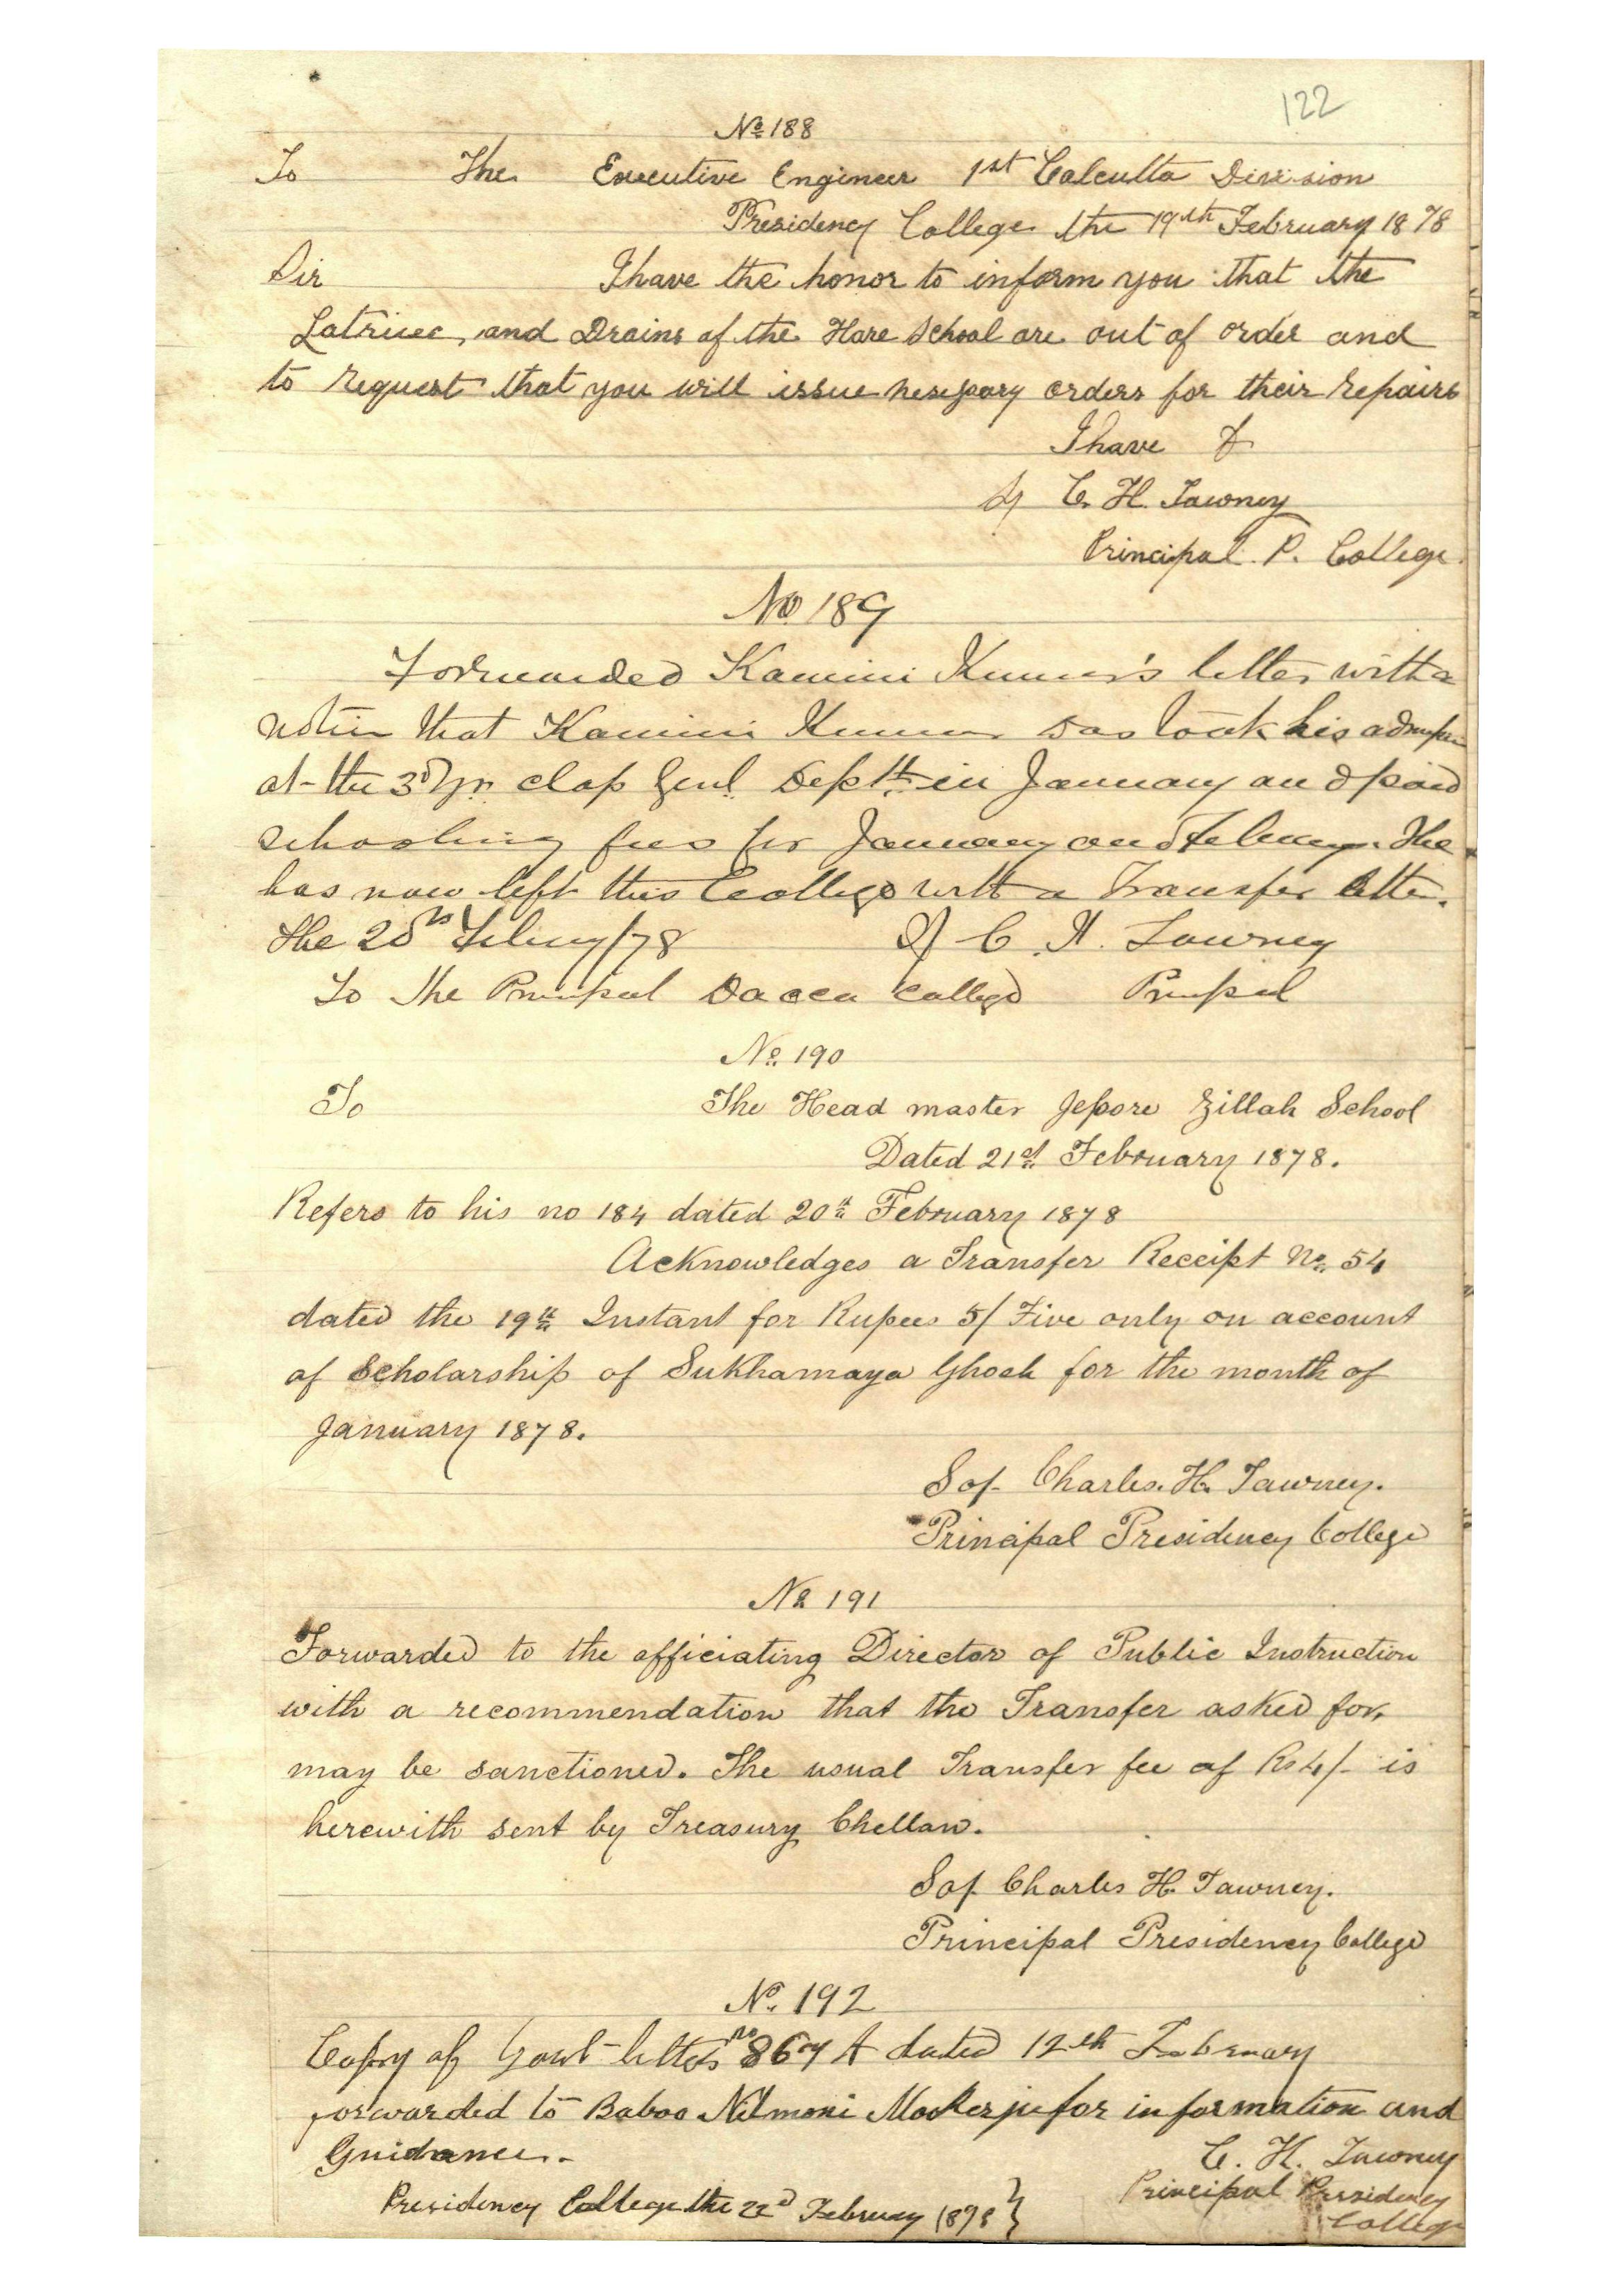 122
No 188
To The Executive Engineer 1st Calcutta Division
Presidency College the 19th February 1878
Sir I have the honor to inform you that the
Latrines, and Drains of the Hare School are out of order and
to request that you will issue nesessary orders for their repairs
I have &
Sd C. H. Tawney
Principal P. College
No 189
Forwarded Kamini Kumar's letter with a
notice that Kamini Kumar Das took his admission
at the 3rd Yr. class Genl. Deptt. in January and paid
schooling fees for January and February. He
has now left this College with a Transfer letter.
The 20th February/78 Sd C. H. Tawney
To The Principal Dacca College Principal
No 190
To The Head master Jessore Zillah School
Dated 21st February 1878.
Refers to his no 184 dated 20th February 1878
Acknowledges a Transfer Receipt No. 54
dated the 19th Instant for Rupees 5/ Five only on account
of Scholarship of Sukhamaya Ghosh for the month of
January 1878.
Sd/- Charles. H. Tawney.
Principal Presidency College
No 191
Forwarded to the officiating Director of Public Instruction
with a recommendation that the Transfer asked for,
may be sanctioned. The usual Transfer fee of Rs 4/- is
herewith sent by Treasury Chellan.
Sd/- Charles H. Tawney.
Principal Presidency College
No. 192
Copy of Govt letters no 867 A dated 12th February
forwarded to Baboo Nilmoni Mookerjee for information and
Guidance.-
C. H. Tawney
Presidency College the 22d February 1878 } Principal Presidency
College